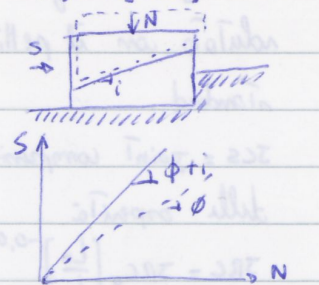 N
S
i
S
ϕ+i
ϕ
N